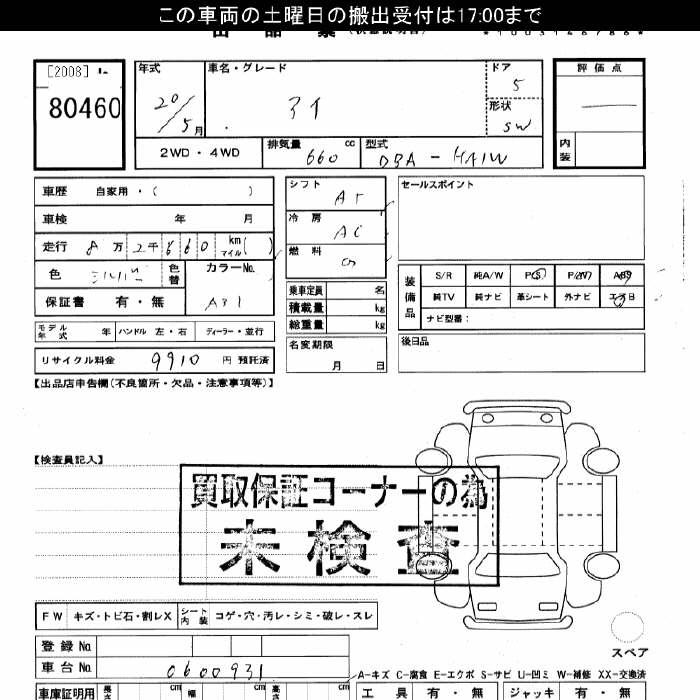 この車両の土曜日の搬出受付は17:00まで
[2008]
80460
年式
車名・グレード
ドア
評価点
20/5月
アイ
5
形状
SW
2WD・4WD
排気量 660 cc
型式 DBA-HA1W
内装
車歴 自家用・( )
車検 年 月
走行 8万2千660 km マイル( )
色 シルバー 色替
カラーNo. A31
保証書 有・無
モデル年式 年
ハンドル 左・右
ディーラー・並行
リサイクル料金 9910 円 預託済
シフト AT
冷房 AC
燃料
乗車定員 名
積載量 kg
総重量 kg
名変期限 月 日
セールスポイント
装備品
S/R 純A/W P/S P/W ABS
純TV 純ナビ 革シート 外ナビ エアB
ナビ型番:
後日品
【出品店申告欄(不良箇所・欠品・注意事項等)】
【検査員記入】
買取保証コーナーの為
未検査
FW キズ・トビ石・割レX
シート内装 コゲ・穴・汚レ・シミ・破レ・スレ
登録No.
車台No. 0600931
スペア
A-キズ C-腐食 E-エクボ S-サビ U-凹ミ W-補修 XX-交換済
車庫証明用 長さ cm 幅 cm 高さ cm
工具 有・無
ジャッキ 有・無